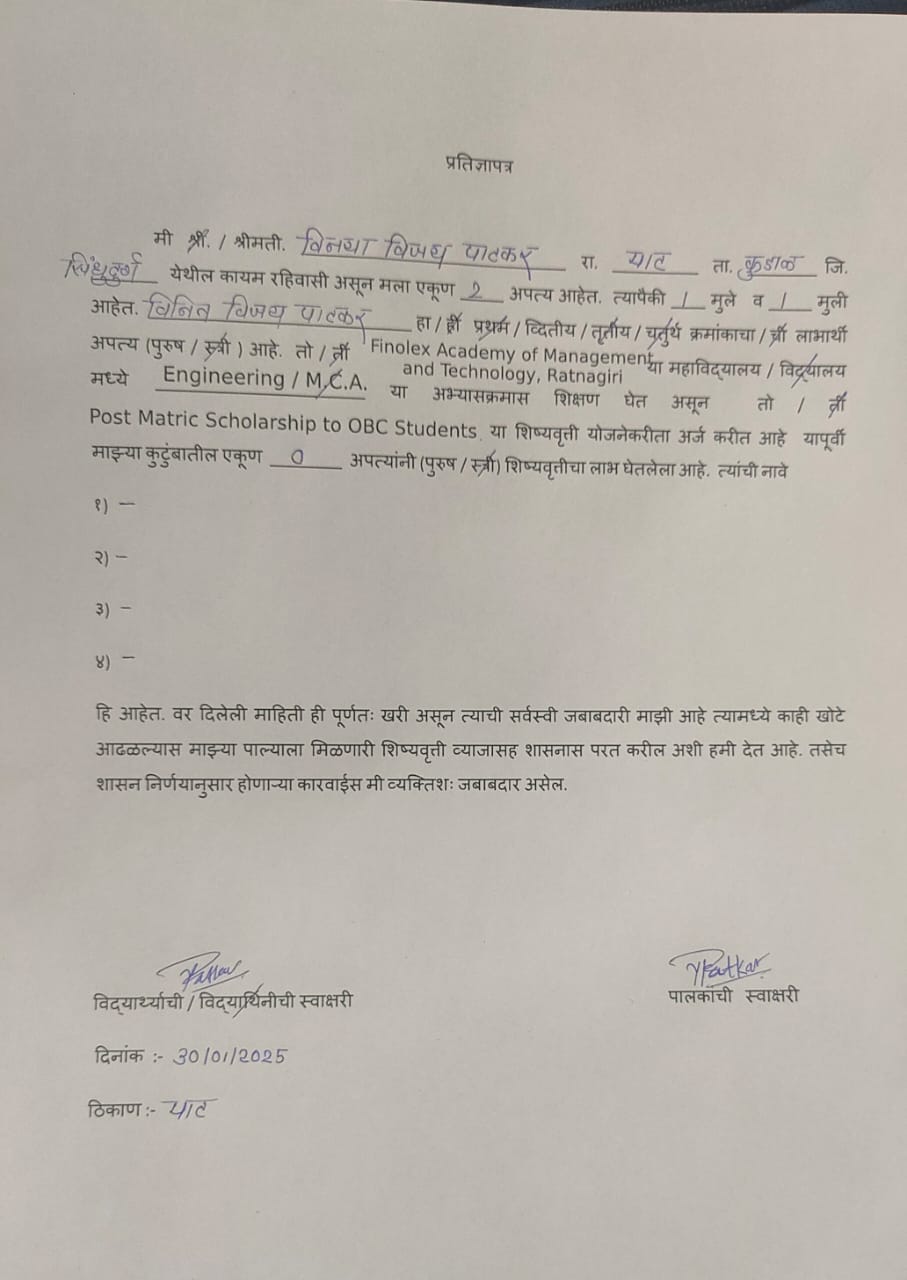 प्रतिज्ञापत्र
मी श्री. / श्रीमती. विनया विजय पाटकर रा. पाट ता. कुडाळ जि.
सिंधुदुर्ग येथील कायम रहिवासी असून मला एकूण 2 अपत्य आहेत. त्यापैकी 1 मुले व 1 मुली
आहेत. विनित विजय पाटकर हा / ही प्रथम / व्दितीय / तृतीय / चतुर्थ क्रमांकाचा / ची लाभार्थी
अपत्य (पुरुष / स्त्री ) आहे. तो / ती Finolex Academy of Management and Technology, Ratnagiri या महाविद्यालय / विद्यालय
मध्ये Engineering / M.C.A. या अभ्यासक्रमास शिक्षण घेत असून तो / ती
Post Matric Scholarship to OBC Students. या शिष्यवृत्ती योजनेकरीता अर्ज करीत आहे यापूर्वी
माझ्या कुटुंबातील एकूण 0 अपत्यांनी (पुरुष / स्त्री) शिष्यवृत्तीचा लाभ घेतलेला आहे. त्यांची नावे
१) –
२) –
३) –
४) –
हि आहेत. वर दिलेली माहिती ही पूर्णतः खरी असून त्याची सर्वस्वी जबाबदारी माझी आहे त्यामध्ये काही खोटे
आढळल्यास माझ्या पाल्याला मिळणारी शिष्यवृत्ती व्याजासह शासनास परत करील अशी हमी देत आहे. तसेच
शासन निर्णयानुसार होणाऱ्या कारवाईस मी व्यक्तिशः जबाबदार असेल.
VPatkar
विद्यार्थ्याची / विद्यार्थिनीची स्वाक्षरी पालकांची स्वाक्षरी
दिनांक :- 30/01/2025
ठिकाण :- पाट